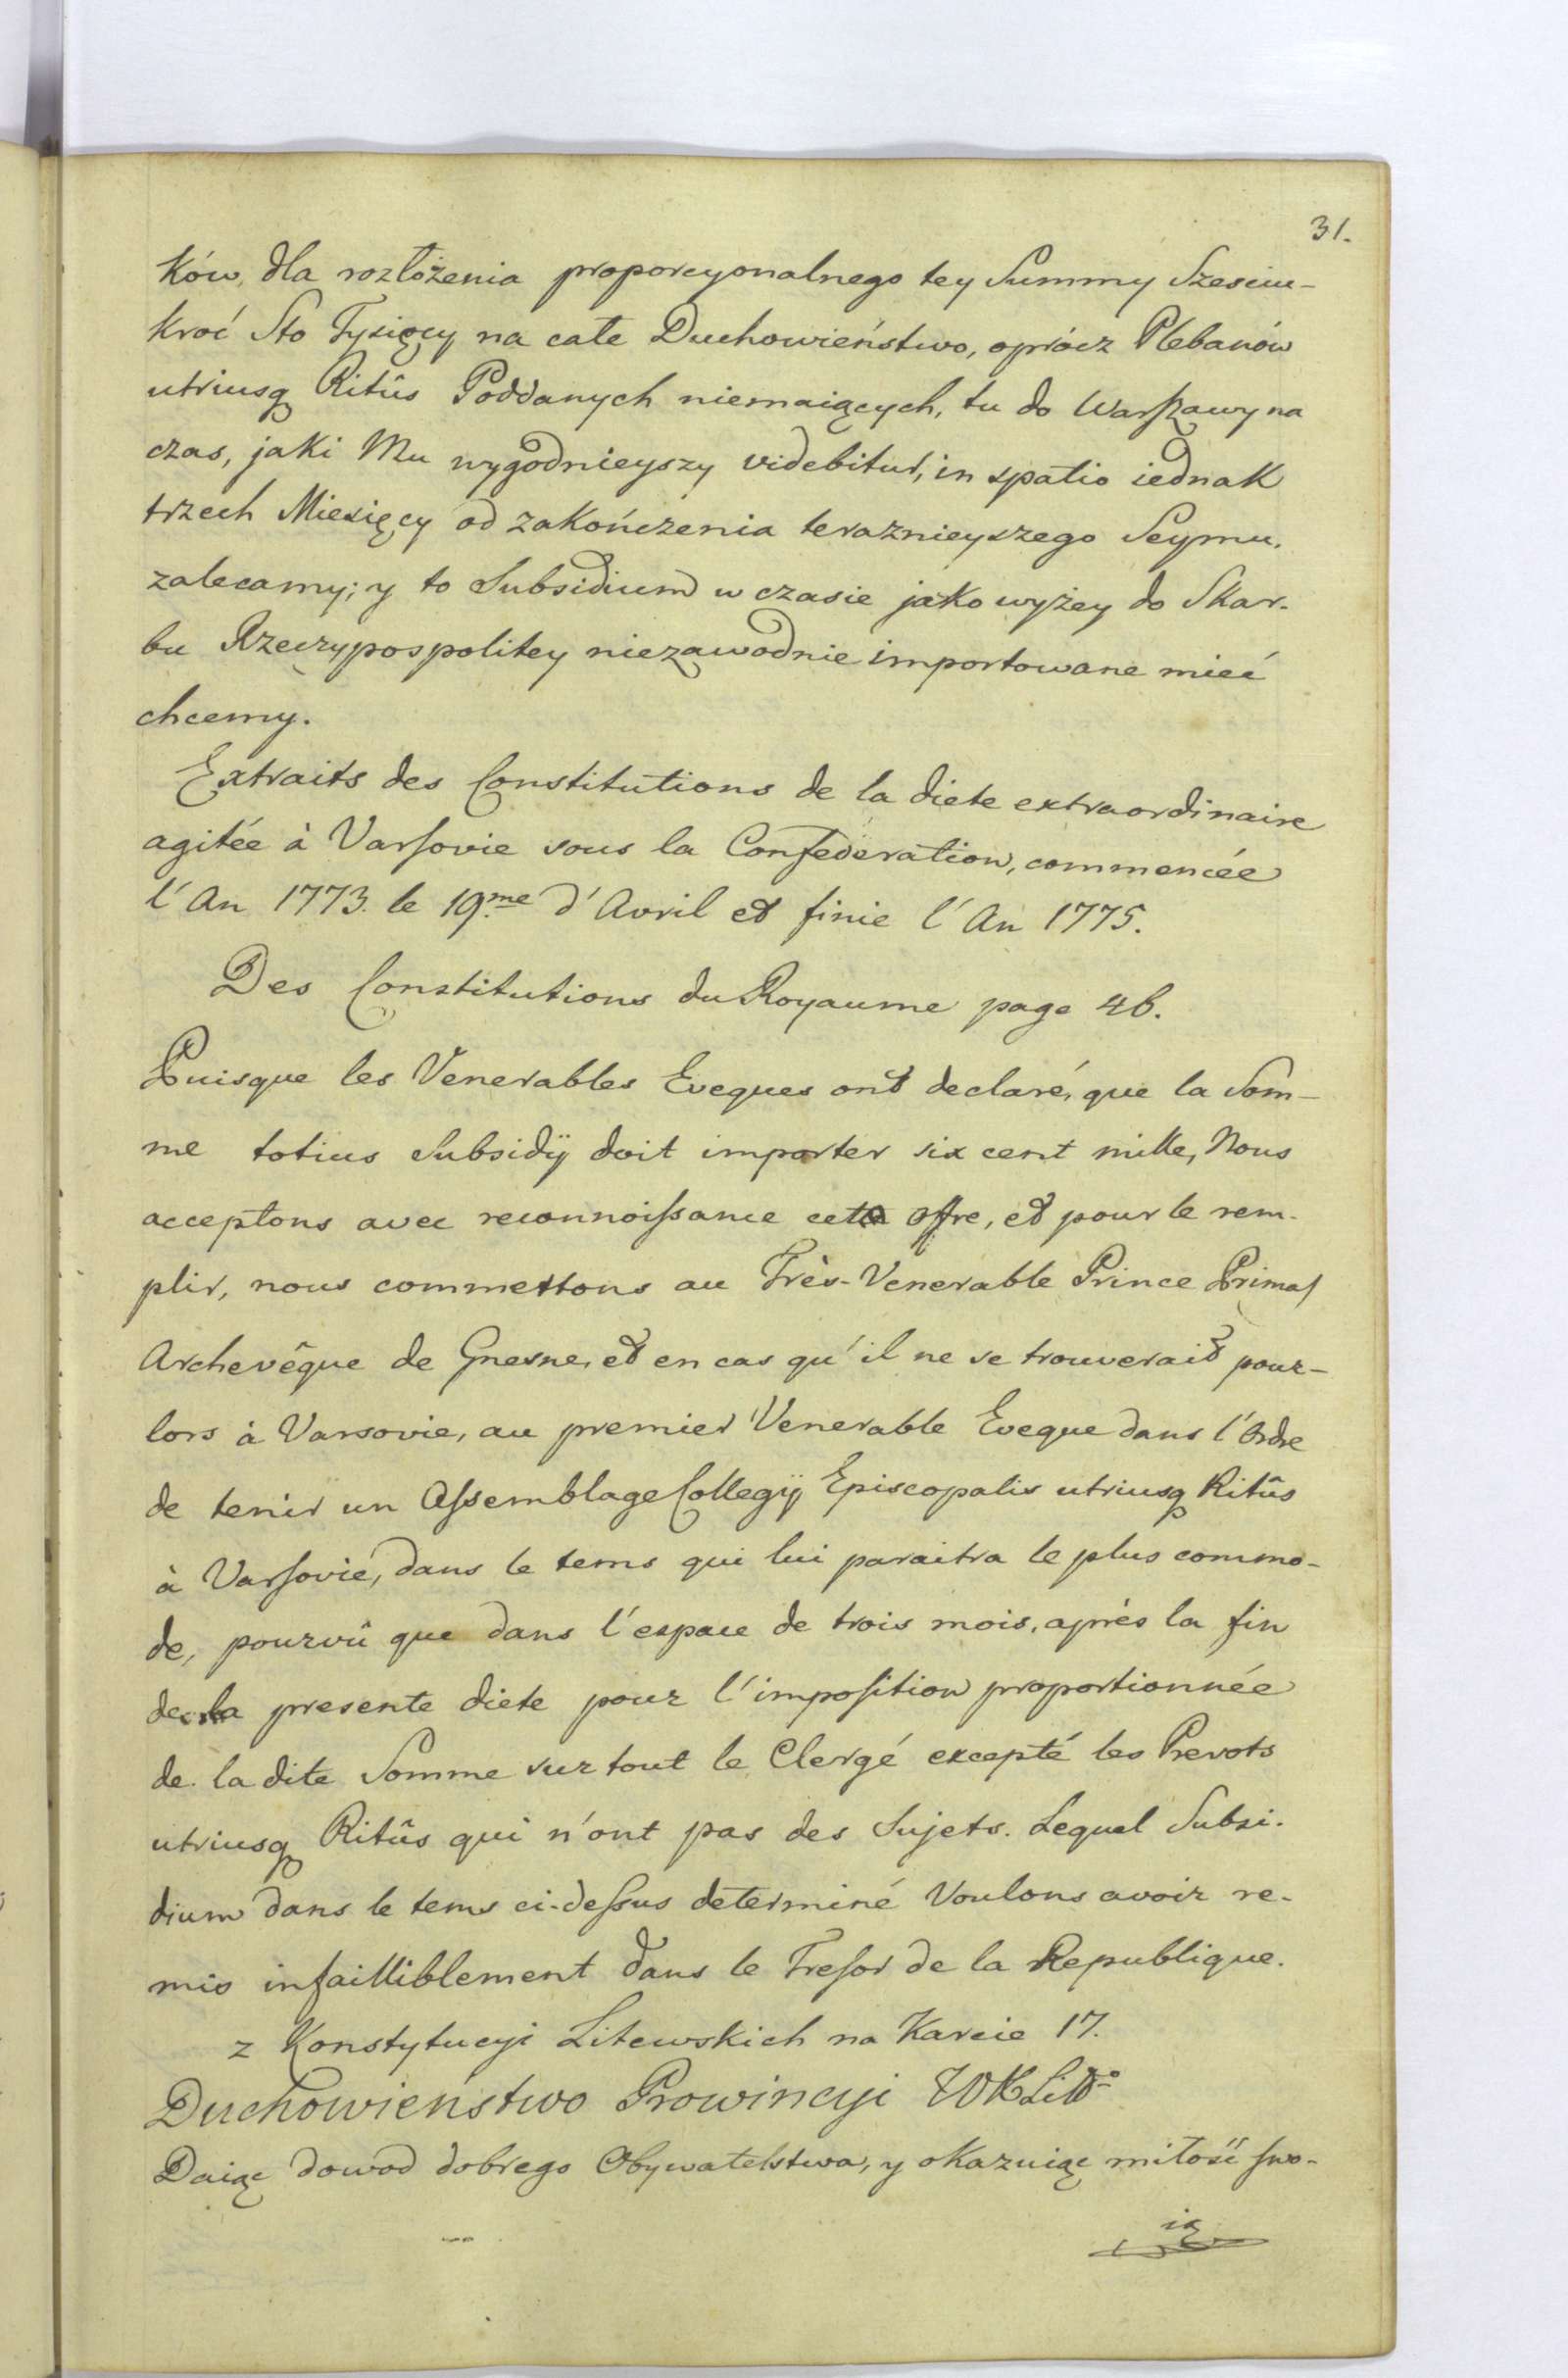 31.
ków, dla rozłożenia proporcyonalnego tey Summy Szesciu-
kroć Sto Tysięcy na całe Duchowieństwo, oprócz Plebanów
utriusq Ritûs Poddanych niemaiących, tu do Warszawy na
czas, jaki Mu wygodnieyszy videbitur, in spatio iednak
trzech Miesięcy od zakończenia teraznieyszego Seymu,
zalecamy; y to Subsidium w czasie jako wyżey do Skar-
bu Rzeczypospolitey niezawodnie importowane mieć
chcemy.
Extraits des Constitutions de la diete extraordinaire
agitée à Varsovie sous la Confederation, commencée
l'An 1773. le 19.me d'Avril et finie l'An 1775.
Des Constitutions du Royaume page 46.
Puisque les Venerables Eveques ont declaré, que la Som-
me totius Subsidÿ doit importer six cent mille, Nous
acceptons avec reconnoissance cette offre, et pour le rem-
plir, nous commettons au Très-Venerable Prince Primas
Archevêque de Gnesne, et en cas qu'il ne se trouverait pour-
lors à Varsovie, au premier Venerable Eveque dans l'Ordre
de tenir un Assemblage Collegÿ Episcopalis utriusq Ritûs
à Varsovie, dans le tems qui lui paraitra le plus commo-
de, pourvû que dans l'espace de trois mois, après la fin
de la presente diete pour l'imposition proportionnée
de la dite Somme sur tout le Clergé excepté les Prevots
utriusq Ritûs qui n'ont pas des Sujets. Lequel Subsi-
dium dans le tems ci-dessus determiné Voulons avoir re-
mis infailliblement dans le Tresor de la Republique.
z Konstytucyi Litewskich na Karcie 17.
Duchowienstwo Prowincyi WXLitt°
Daiąc dowod dobrego Obywatelstwa, y okazuiąc miłość swo-
ią